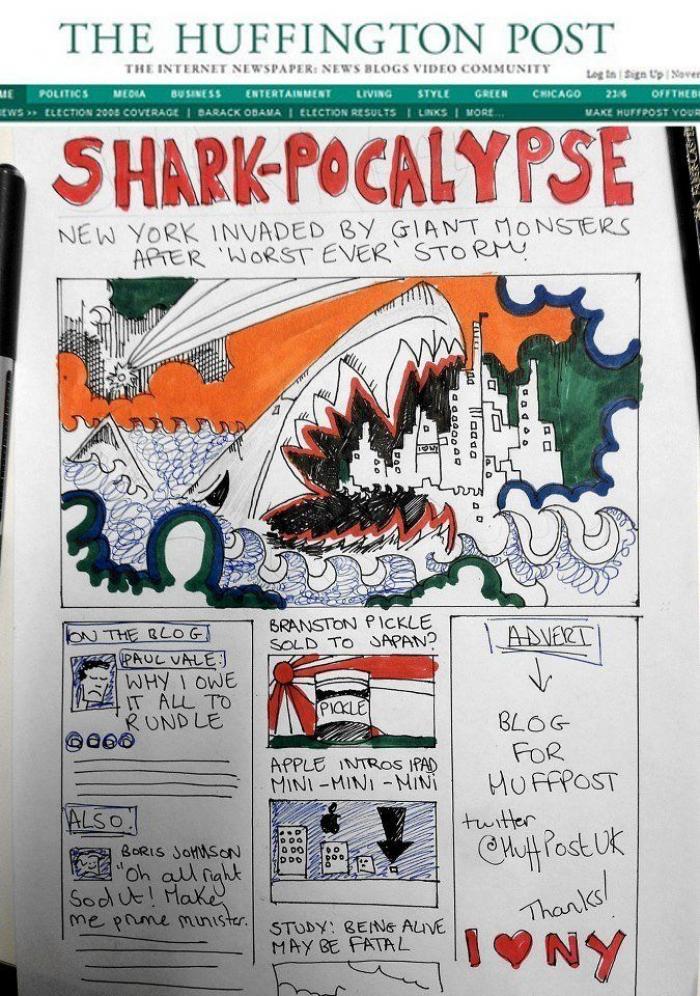 THE HUFFINGTON POST
THE INTERNET NEWSPAPER: NEWS BLOGS VIDEO COMMUNITY
Log In | Sign Up |
POLITICS MEDIA BUSINESS ENTERTAINMENT LIVING STYLE GREEN CHICAGO 23/6
>> ELECTION 2008 COVERAGE | BARACK OBAMA | ELECTION RESULTS | LINKS | MORE... MAKE HUFFPOST
SHARK-POCALYPSE
NEW YORK INVADED BY GIANT MONSTERS
AFTER 'WORST EVER' STORM!
ON THE BLOG
PAUL VALE:
WHY I OWE
IT ALL TO
RUNDLE
ALSO:
BORIS JOHNSON
"Oh all right
Sod it! Make
me prime minister.
BRANSTON PICKLE
SOLD TO JAPAN?
PICKLE
APPLE INTROS IPAD
MINI-MINI-MINI
STUDY: BEING ALIVE
MAY BE FATAL
ADVERT
BLOG
FOR
HUFFPOST
twitter
@HuffPostUK
Thanks!
I ♥ NY